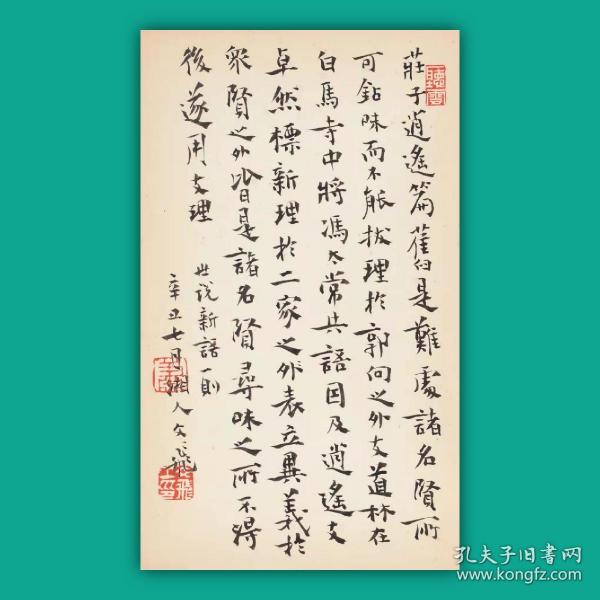 莊子逍遙篇舊是難處諸名賢所
可鉆味而不能拔理於郭向之外支道林在
白馬寺中將馮太常共語因及逍遙支
卓然標新理於二家之外表立異義於
眾賢之外皆是諸名賢尋味之所不得
後遂用支理
世说新語一則
辛丑七月湘人文飛
孔夫子旧书网
www.kongfz.com